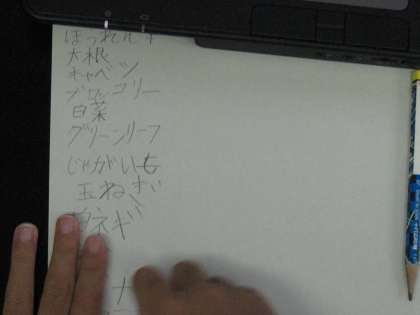 ほうれん草
大根
キャベツ
ブロッコリー
白菜
グリーンリーフ
じゃがいも
玉ねぎ
ネギ
ナ